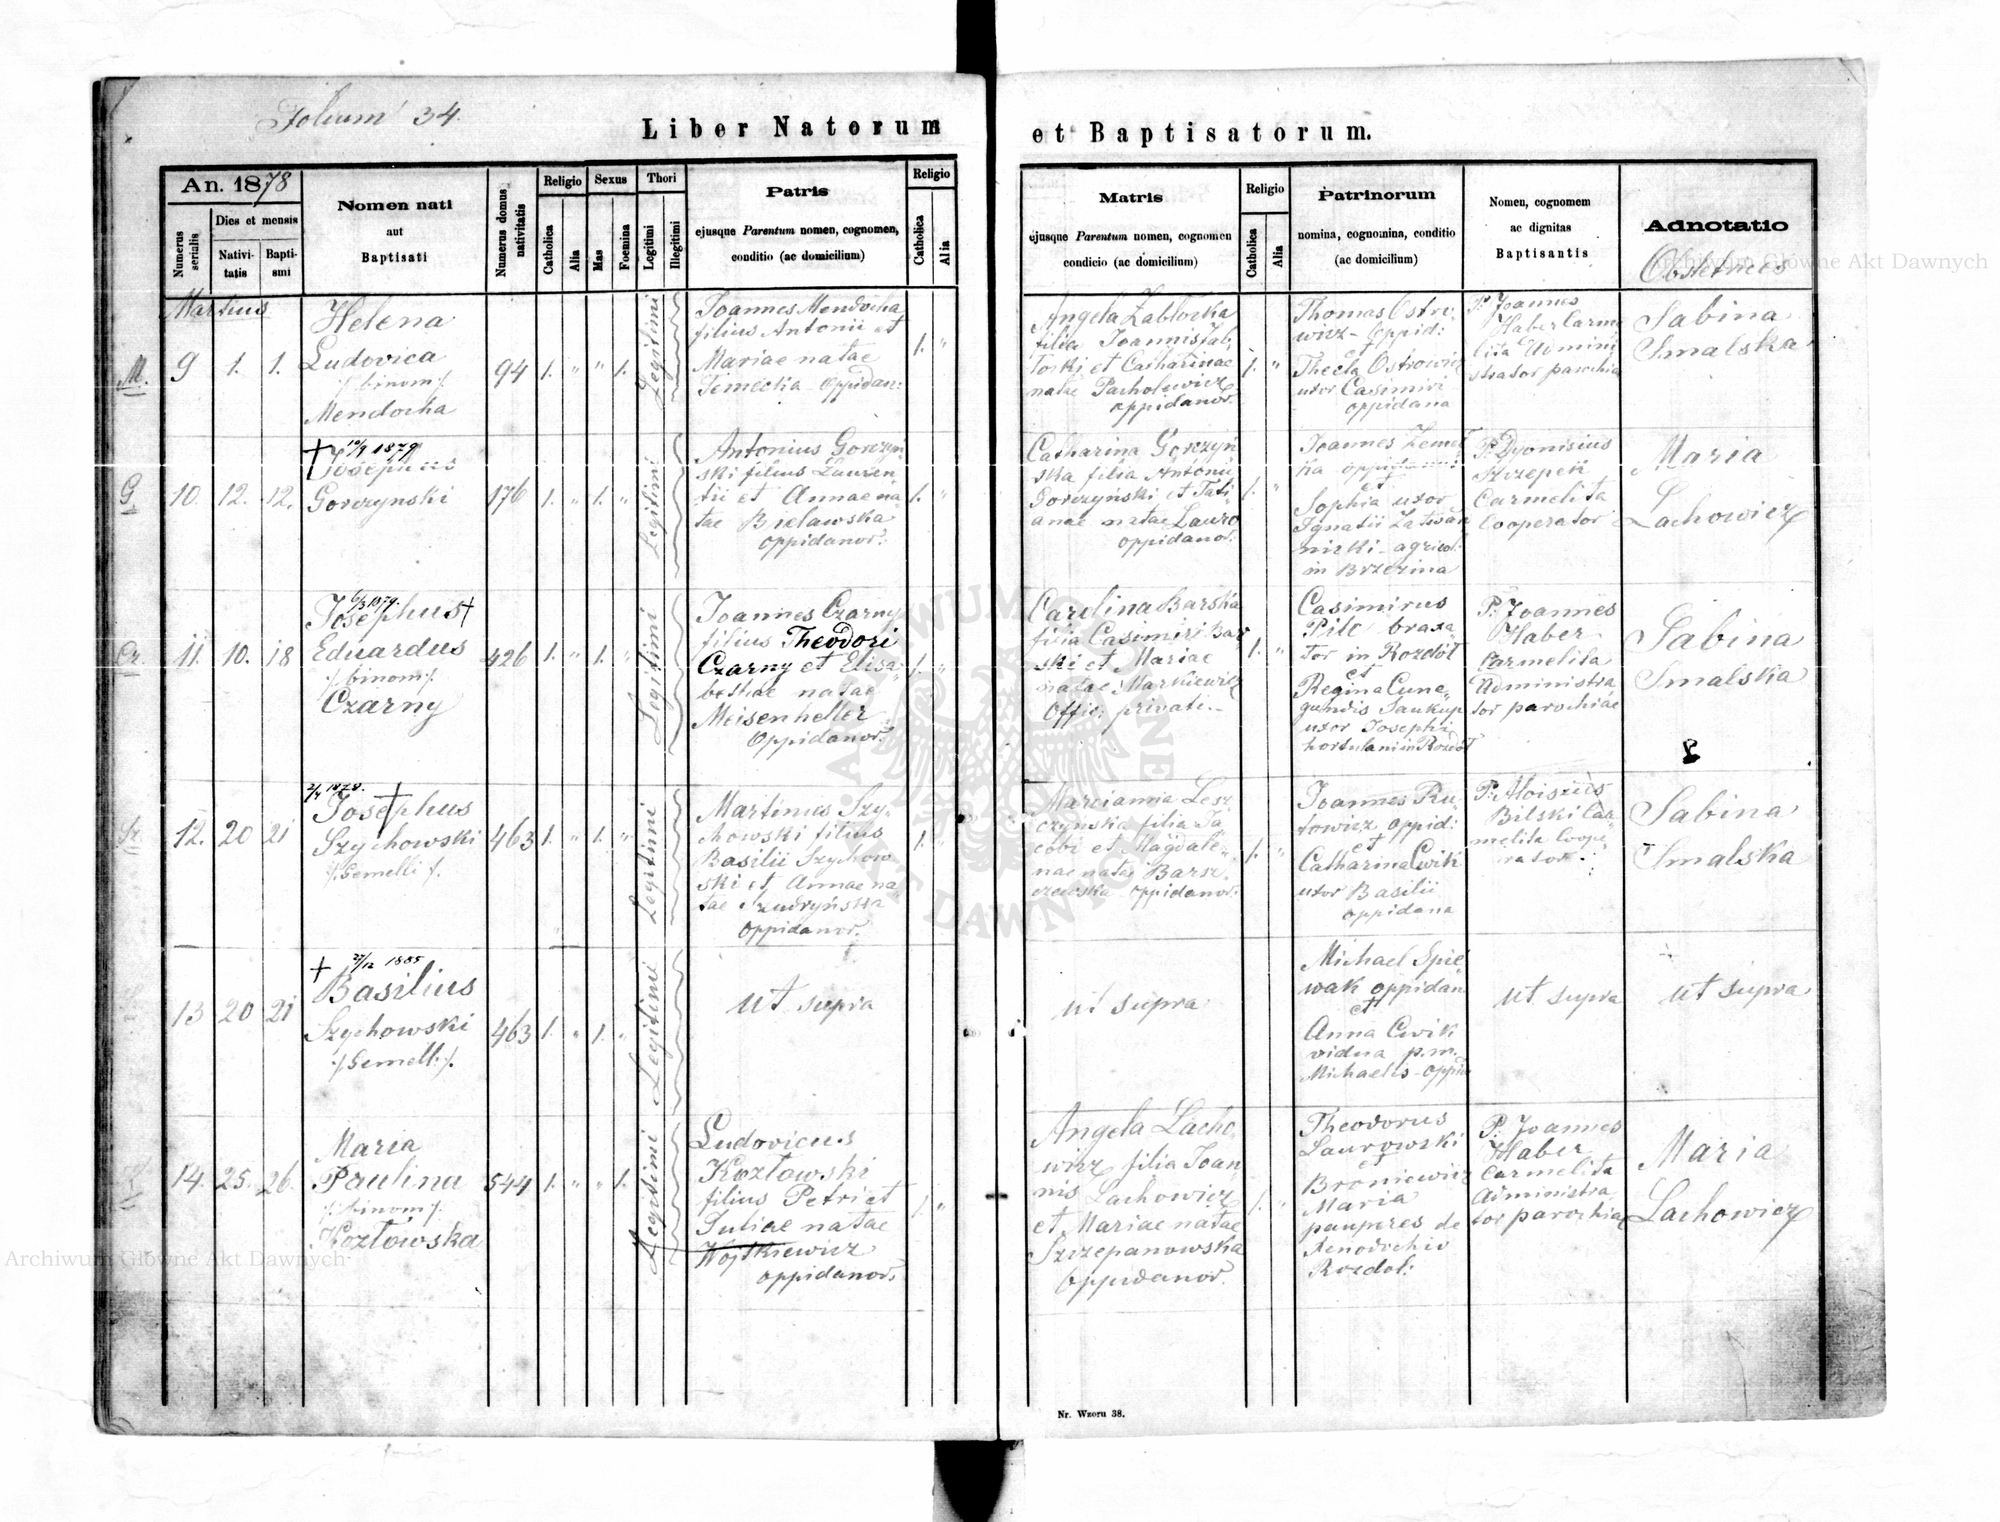 Folium 34
Liber Natorum et Baptisatorum.
An. 1878
Numerus serialis
Dies et mensis
Nativi-
tatis
Bapti-
smi
Nomen nati
aut
Baptisati
Numerus domus nativitatis
Religio
Catholica
Alia
Sexus
Mas
Foemina
Thori
Legitimi
Illegitimi
Patris
ejusque Parentum nomen, cognomen,
conditio (ac domicilium)
Religio
Catholica
Alia
Matris
ejusque Parentum nomen, cognomen
condicio (ac domicilium)
Religio
Catholica
Alia
Patrinorum
nomina, cognomina, conditio
(ac domicilium)
Nomen, cognomen
ac dignitas
Baptisantis
Adnotatio
Obstetrices
Martius
M.
9
1.
1.
Helena
Ludovica
/: binom :/
Mendocha
94
1.
"
"
1.
Legitimi
Joannes Mendocha
filius Antonii et
Mariae natae
Temecka Oppidan:
1.
"
Angela Zabłocka
filia Joannis Zab-
łocki et Catharinae
natae Pacholewicz
oppidanor.
1.
"
Thomas Ostro-
wicz - Oppid:
et
Thecla Ostrowicz
uxor Casimiri
oppidana
P. Joannes
Haber Carme
lita Admini-
strator parochia
Sabina
Smalska
G.
10.
12.
12.
† 10/9 1879
Josephus
Gorczynski
176
1.
"
1.
"
Legitimi
Antonius Gorczyn-
ski filius Lauren-
tii et Annae na-
tae Bielawska
oppidanor:
1.
"
Catharina Gorczyń
ska filia Antonii
Gorczynski et Tati-
anae natae Lauro
oppidanor:
1.
"
Joannes Zemeł
ka oppidanus
et
Sophia uxor
Ignatii Zatwar
nicki - agricol:
in Brzezina
P. Dyonisius
Krzepek
Carmelita
Cooperator
Maria
Lachowicz
Cz.
11.
10.
18
6/3 1879.
Josephus †
Eduardus
/: binom :/
Czarny
426
1.
"
1.
"
Legitimi
Joannes Czarny
filius Theodori
Czarny et Elisa-
bethae natae
Meisenhelter
Oppidanor.
1.
"
Carolina Barska
filia Casimiri Bar
ski et Mariae
natae Markiewicz
Offic: privati.-
1.
"
Casimirus
Pilc braxa
tor in Rozdół
et
Regina Cune-
gundis Saukup
uxor Josephi
hortulani in Rozdół
P. Joannes
Haber
Carmelita
Administra
tor parochiae
Sabina
Smalska
Sz.
12.
20
21
2/4 1878.
Josephus †
Szychowski
/: Gemelli :/.
463
1.
"
1.
"
Legitimi
Martinus Szy-
chowski filius
Basilii Szychow
ski et Annae na-
tae Szudryńska
Oppidanor.
1.
"
Marcianna Lesz
czynska filia Ja
cobi et Magdale-
nae natae Barsz-
czewska oppidanor:
1.
"
Joannes Ru-
towicz oppid:
et
Catharina Cwik
uxor Basilii
oppidana
P. Aloisius
Bilski Car-
melita Coope-
rator.
Sabina
Smalska
13
20
21
† 27/12 1885
Basilius
Szychowski
/: Gemell: :/.
463
1.
"
1.
"
Legitimi
ut supra
ut supra
Michael Spie-
wak oppidan
et
Anna Cwik
vidua p.m.
Michaelis - oppid
ut supra
ut supra
14.
25.
26.
Maria
Paulina
/: binom :/
Kozłowska
544
1.
"
"
1.
Legitimi
Ludovicus
Kozłowski
filius Petri et
Juliae natae
Wojtkiewicz
oppidanor.
1.
"
Angela Lacho-
wicz filia Joan-
nis Lachowicz
et Mariae natae
Szczepanowska
Oppidanor.
1.
"
Theodorus
Laurowski
et
Broniewicz
Maria
pauperes de
Xenodochio
Rozdol:
P. Joannes
Haber
Carmelita
Administra
tor parochiae
Maria
Lachowicz
Nr. Wzoru 38.
Archiwum Główne Akt Dawnych
Archiwum Główne Akt Dawnych